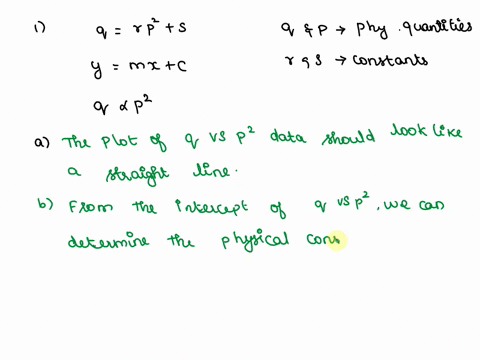 1) q = rp² + s q & p → phy. quantities
y = mx + c r & s → constants
q ∝ p²
a) The plot of q vs p² data should look like
a straight line.
b) From the intercept of q vs p², we can
determine the physical cons